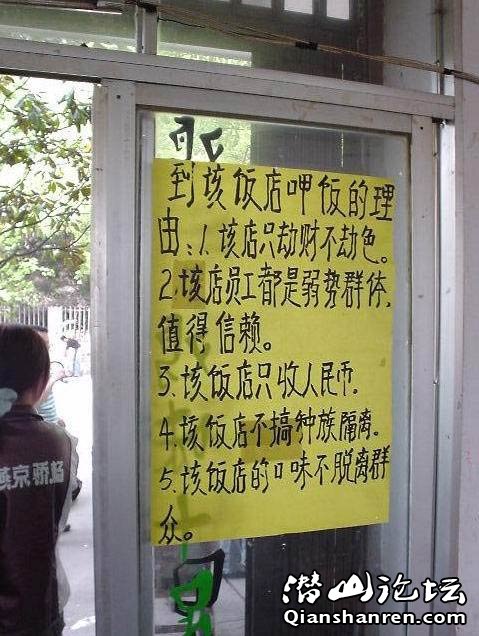 到该饭店呷饭的理
由:1.该店只劫财不劫色。
2.该店员工都是弱势群体,
值得信赖。
3.该饭店只收人民币.
4.该饭店不搞种族隔离.
5.该饭店的口味不脱离群
众。
燕京骄杨
潜山论坛
Qianshanren.com